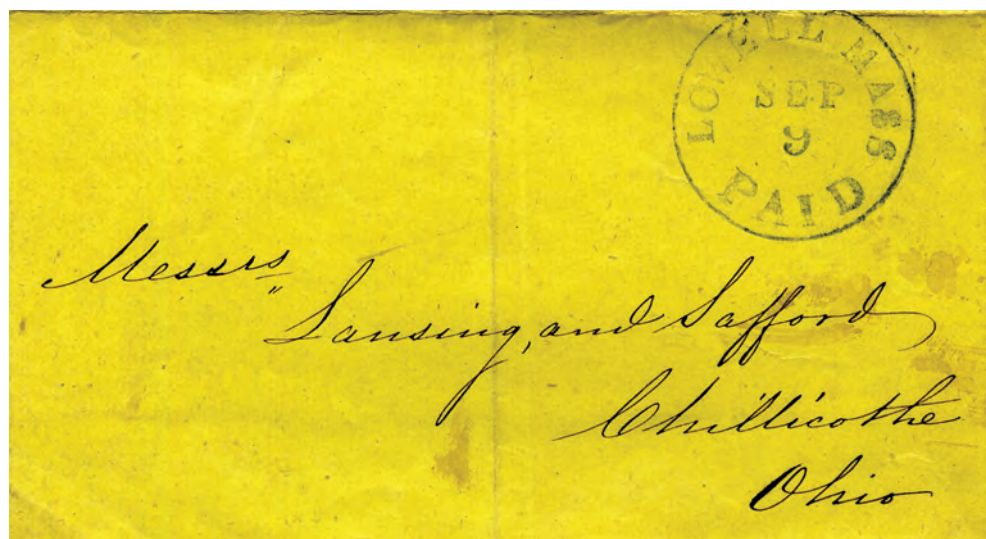 LOWELL MASS
SEP
9
PAID
Messrs
Lansing, and Safford
Chillicothe
Ohio